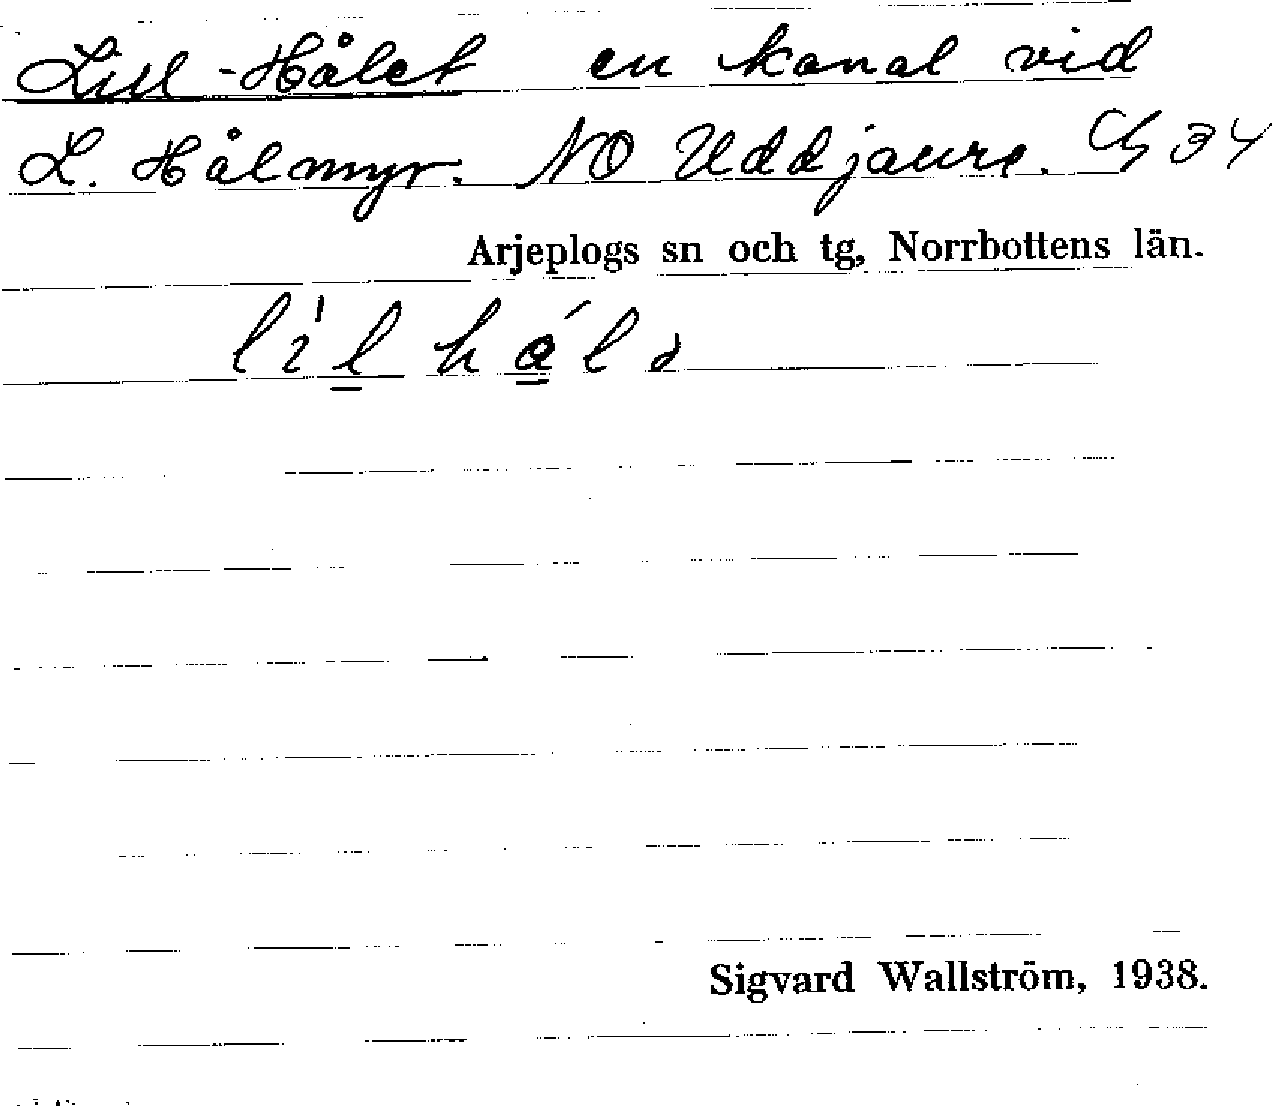 Lill-Hålet en kanal vid
L. Hålmyr. NO Uddjaure. 34
Arjeplogs sn och tg, Norrbottens län.
Sigvard Wallström, 1938.